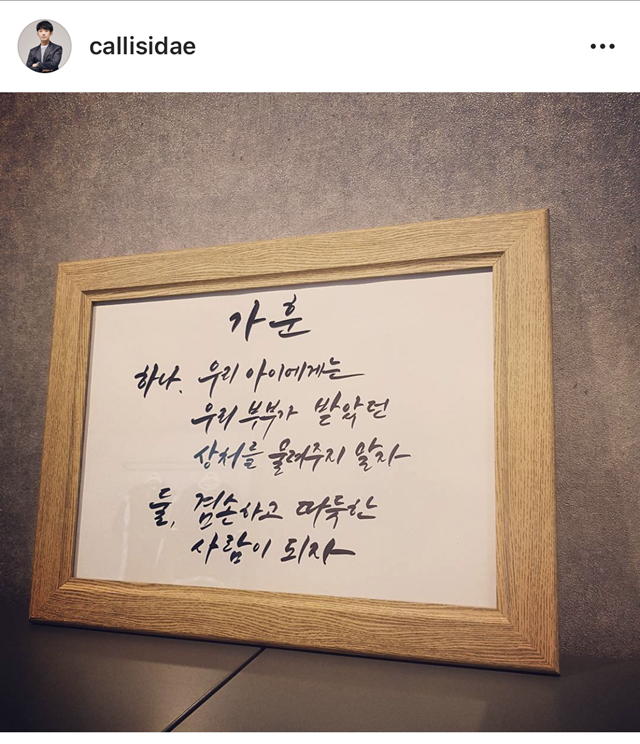 callisidae
가훈
하나. 우리 아이에게는
우리 부부가 받았던
상처를 물려주지 말자
둘, 겸손하고 따뜻한
사람이 되자